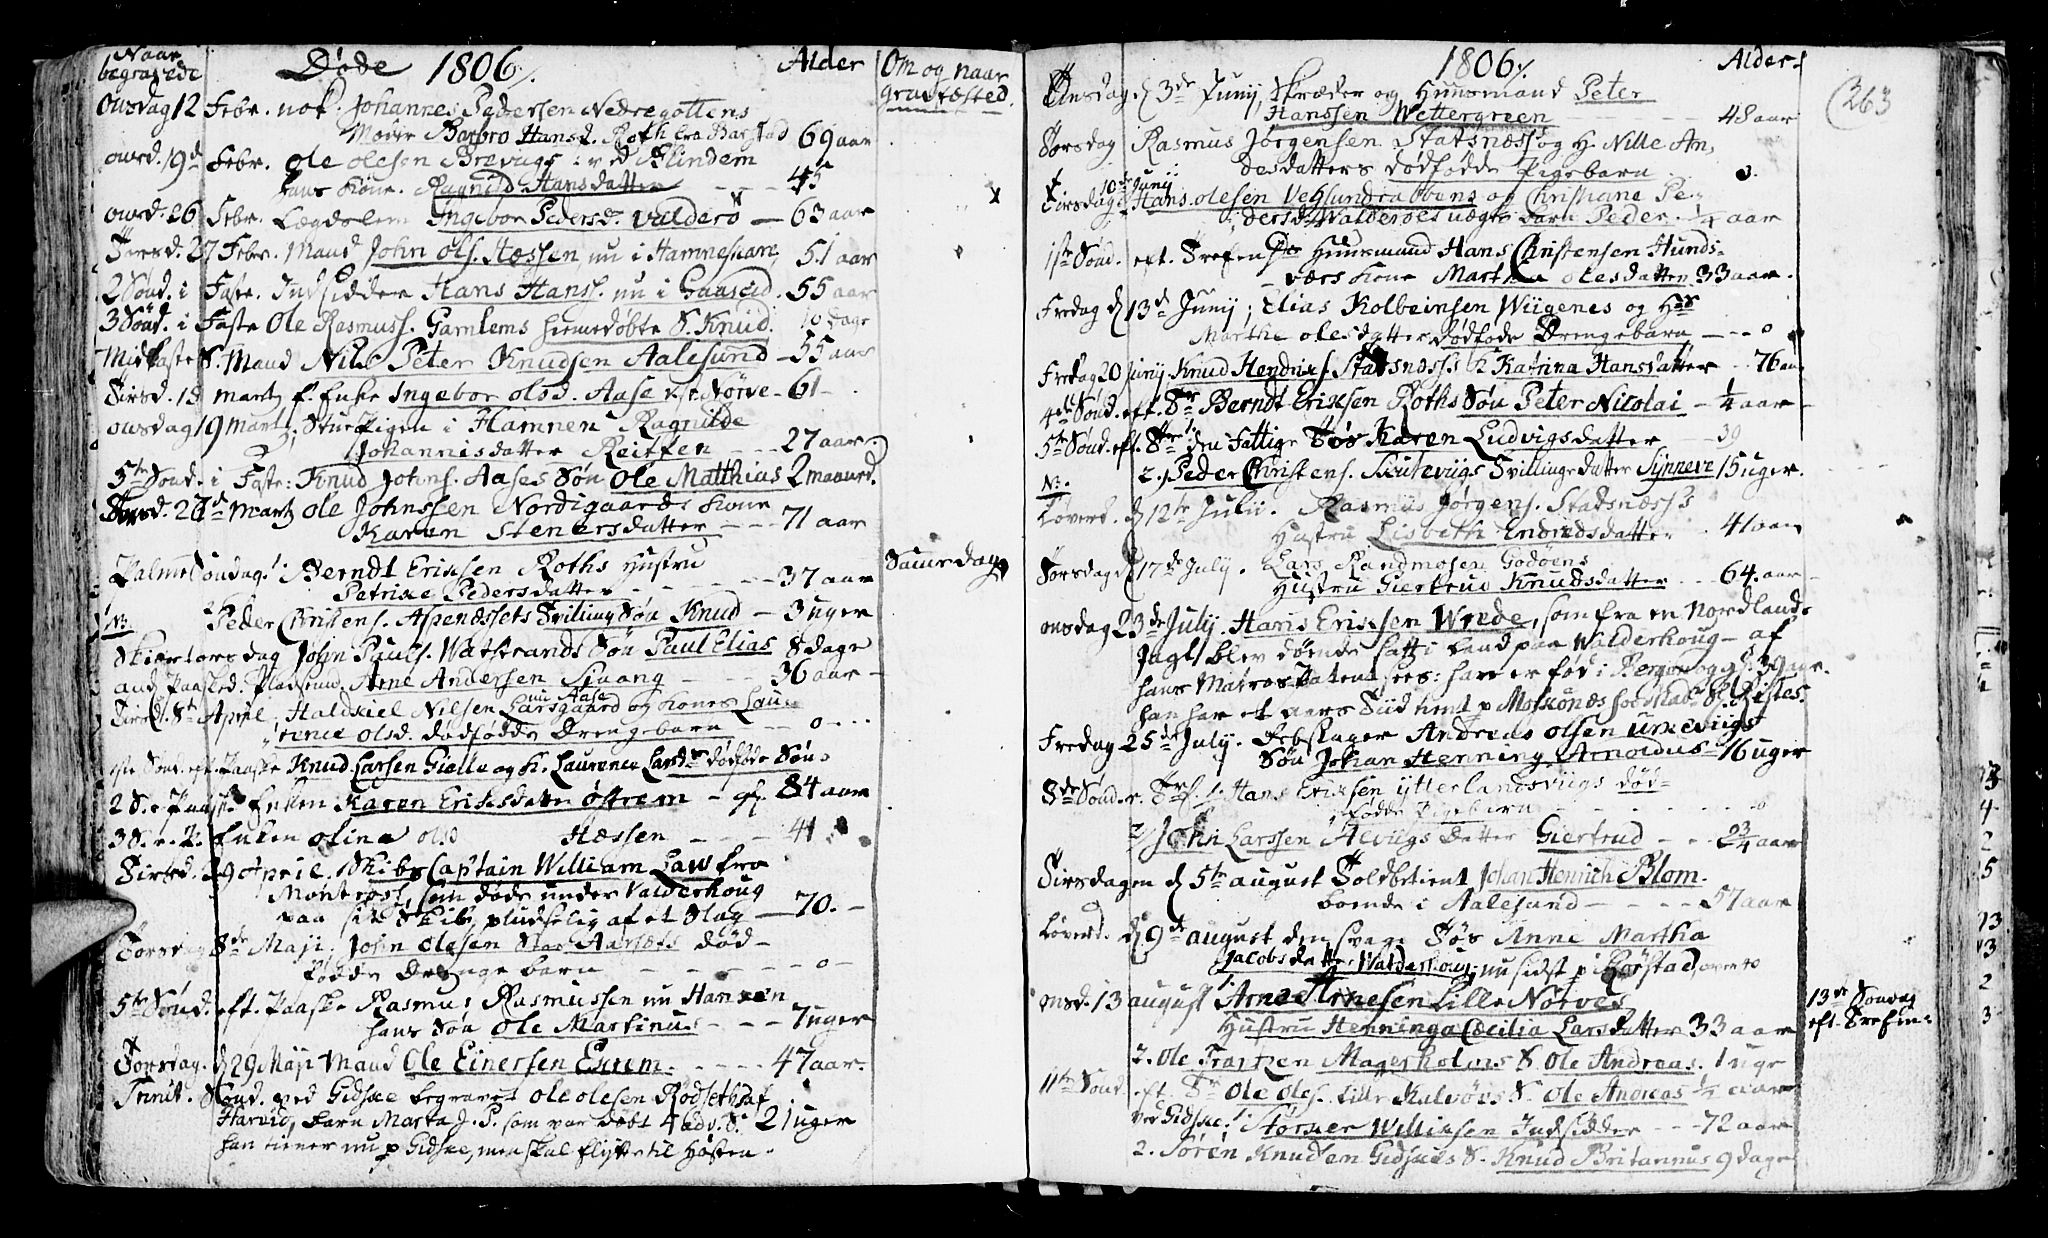 Naar
begravede
Døde 1806.
Alder
Om og naar
gravfæsted.
Onsdag 12 Febr. nok. Johannes Pedersen Nedregottens
Moder Barbro Hansd. Roth fra Barstad 69 aar
onsd. 19d Febr. Ole olesen Brevigs ved Blindem
hans Kone. Ragnild Hansdatter - - 45
onsd. 26 Febr. Lægdslem Ingebor Pedersd. Valderø - 63 aar x
Torsd. 27 Febr. Mand John ols. Hæssen, nu i Hamneskare, 51 aar
2 Sønd. i Faste. Indsidder Hans Hanss. nu i Gaaseid. 55 aar
3 Sønd. i Faste Ole Rasmuss. Gamlems hiemedøbte S. Knud. 10 dage
Midfaste S. Mand Nils Peter Knudsen Aalesund - 55 aar
Tirsd. 18 marti f. Enke Ingebor olsd. Aase Nørve - 61 -
onsdag 19 Marti, Stuepigen i Hamnen Ragnilde
Johannisdatter Reiten - - - 27 aar.
5te Sønd. i Faste: Knud Johns. Aases Søn Ole Matthias 2 maaned.
Marti Ole Johnssen Nordigaards Kone
Karen Stenersdatter - - - 71 aar
Palme Søndag: 1. Berndt Erixen Roths Hustru
Petrixe Pedersdatter - - - 37 aar
Samedag
NB. 2 Peder Christens. Aspenæssets Tvilling Søn Knud - 3 uger
Skiertorsdag John Pauls. Watstrands Søn Paul Elias 8 dage
and. Paasked. Pladsmd. Arne Andersen Siaang - - - 36 aar -
nu Aase
Tirsd. 8de April, Haldkiel Nilsen Larsgaard og Kones Lau-
rence olsd. dødfødde Drengebarn - - 0 - - -
1ste Sønd. eft. Paaske Knud Larsen Gielle og H. Laurence Larsdr dødføde Søn 0
2 S. e. Paaske Enken Karen Eriksdatter Østrem - gl. 84 aar
3 S. e. P. Enken Olina olsd Hæssen - - - 41
Tirsd. 29 April. Skibs Captain William Law fra
Montross, som døde under Valderhoug
paa sit Skib, pludselig af et Slag - 70. -
Torsdag 8de Maji. John Olesen Aarsets død-
fødde Drenge barn - - - - - 0 -
5te Sønd. eft. Paaske Rasmus Rasmussen nu Hansen
hans Søn Ole Martinus - - - 7 uger
Torsdag. d 29 Maji Mand Ole Einersen Exrem - - - - - 47 aar.
Trinit. Sønd. ved Gidske begravet Ole olesen Rødseths af
Harreid, barn Marta J. P. som var døbt 4 Adv. S. 21 uger
han tiener nu p Gidske, men skal flytte til Høsten.
1806.
Alder
263
Onsdag d 3de Junij, Skræder og Huusmand Peter
Hanssen Wettergreen - - - 48 aar
Torsdag Rasmus Jørgensen Statsnæss og H. Nille An-
desdatters dødfødde Pigebarn. 0.
10de Junij
Tirsdag Hans olesen Vegsundrabbens og Christiane Pe-
dersd. Walderøes uægte barn Peder. ¼ aar
1ste Sønd. eft. Trefen Huusmand Hans Christensen Hunds-
værs Kone Martha olesdatter 33 aar.
Fredag d 13d Junij, Elias Kolbeinsen Wiigenes og Hs
Marthe olesdatter dødføde Drengebarn - - 0
Fredag 20 Junij, Knud Hendrixs. Statsnæss Katrina Hansdatter - - 76 aar
4de Sønd. eft. Tr Berndt Erixsen Roths Søn Peter Nicolai - ¼ aar -
5te Sønd. eft. Tr. 1. den Fattige Tøs Karen Ludvigsdatter - 39
NB. 2. Peder Christens. Tvillingedatter Synneve 15 uger.
Løverd. d 12te Julii. Rasmus Jørgens. Stadsnæss's
Hustru Lisbeth Endredsdatter. - 41 aar
Torsdag d 17de July. Lars Randmosen Godøens
Hustru Giertrud Knudsdatter - - 64 aar -
onsdag 23de July. Hans Erixsen Wrede, som fra en Nordlands
Jagt blev døende satt i land paa Walderhoug - af
hans Matros Patent sees: han er fød i Bergen og gl. 39 aar.
Fredag 25de July. Andreas olsen Urxeviigs
Søn Johan Henning Arnoldus - 16 uger
8de Sønd. e. Tref. 1. Hans Erixsen Ytterlandsviigs død-
fødde Pigebarn - - - - 0
2. John Larssen Alviigs Datter Giertrud - - 2¾ aar
Tirsdagen d 5te august Toldbetient Johan Henrich Blom.
boende i Aalesund - - - - - 57 aar
Løverd. d 9de august den svage Tøs Anne Martha
Jacobsdatter Walderhoug, nu sidst p Børstad over 40
onsd. 13 august 1. Arne Arnesen Lille Nørves
Hustru Henninga Cæcilia Larsdatter 33 aar
13de Søndag
eft. Trefin:
2. Ole Magerholms S. Ole Andreas. 1 uge
11te Sønd. eft. Tr Ole Oles. Lille Kalvøes S. Ole Andreas ½ aar
ved Gidske: 1. Størker Willixsen Indsidder - - 72 aar
2. Søren Knudsen Gidskes S. Knud Britannus 9 dage